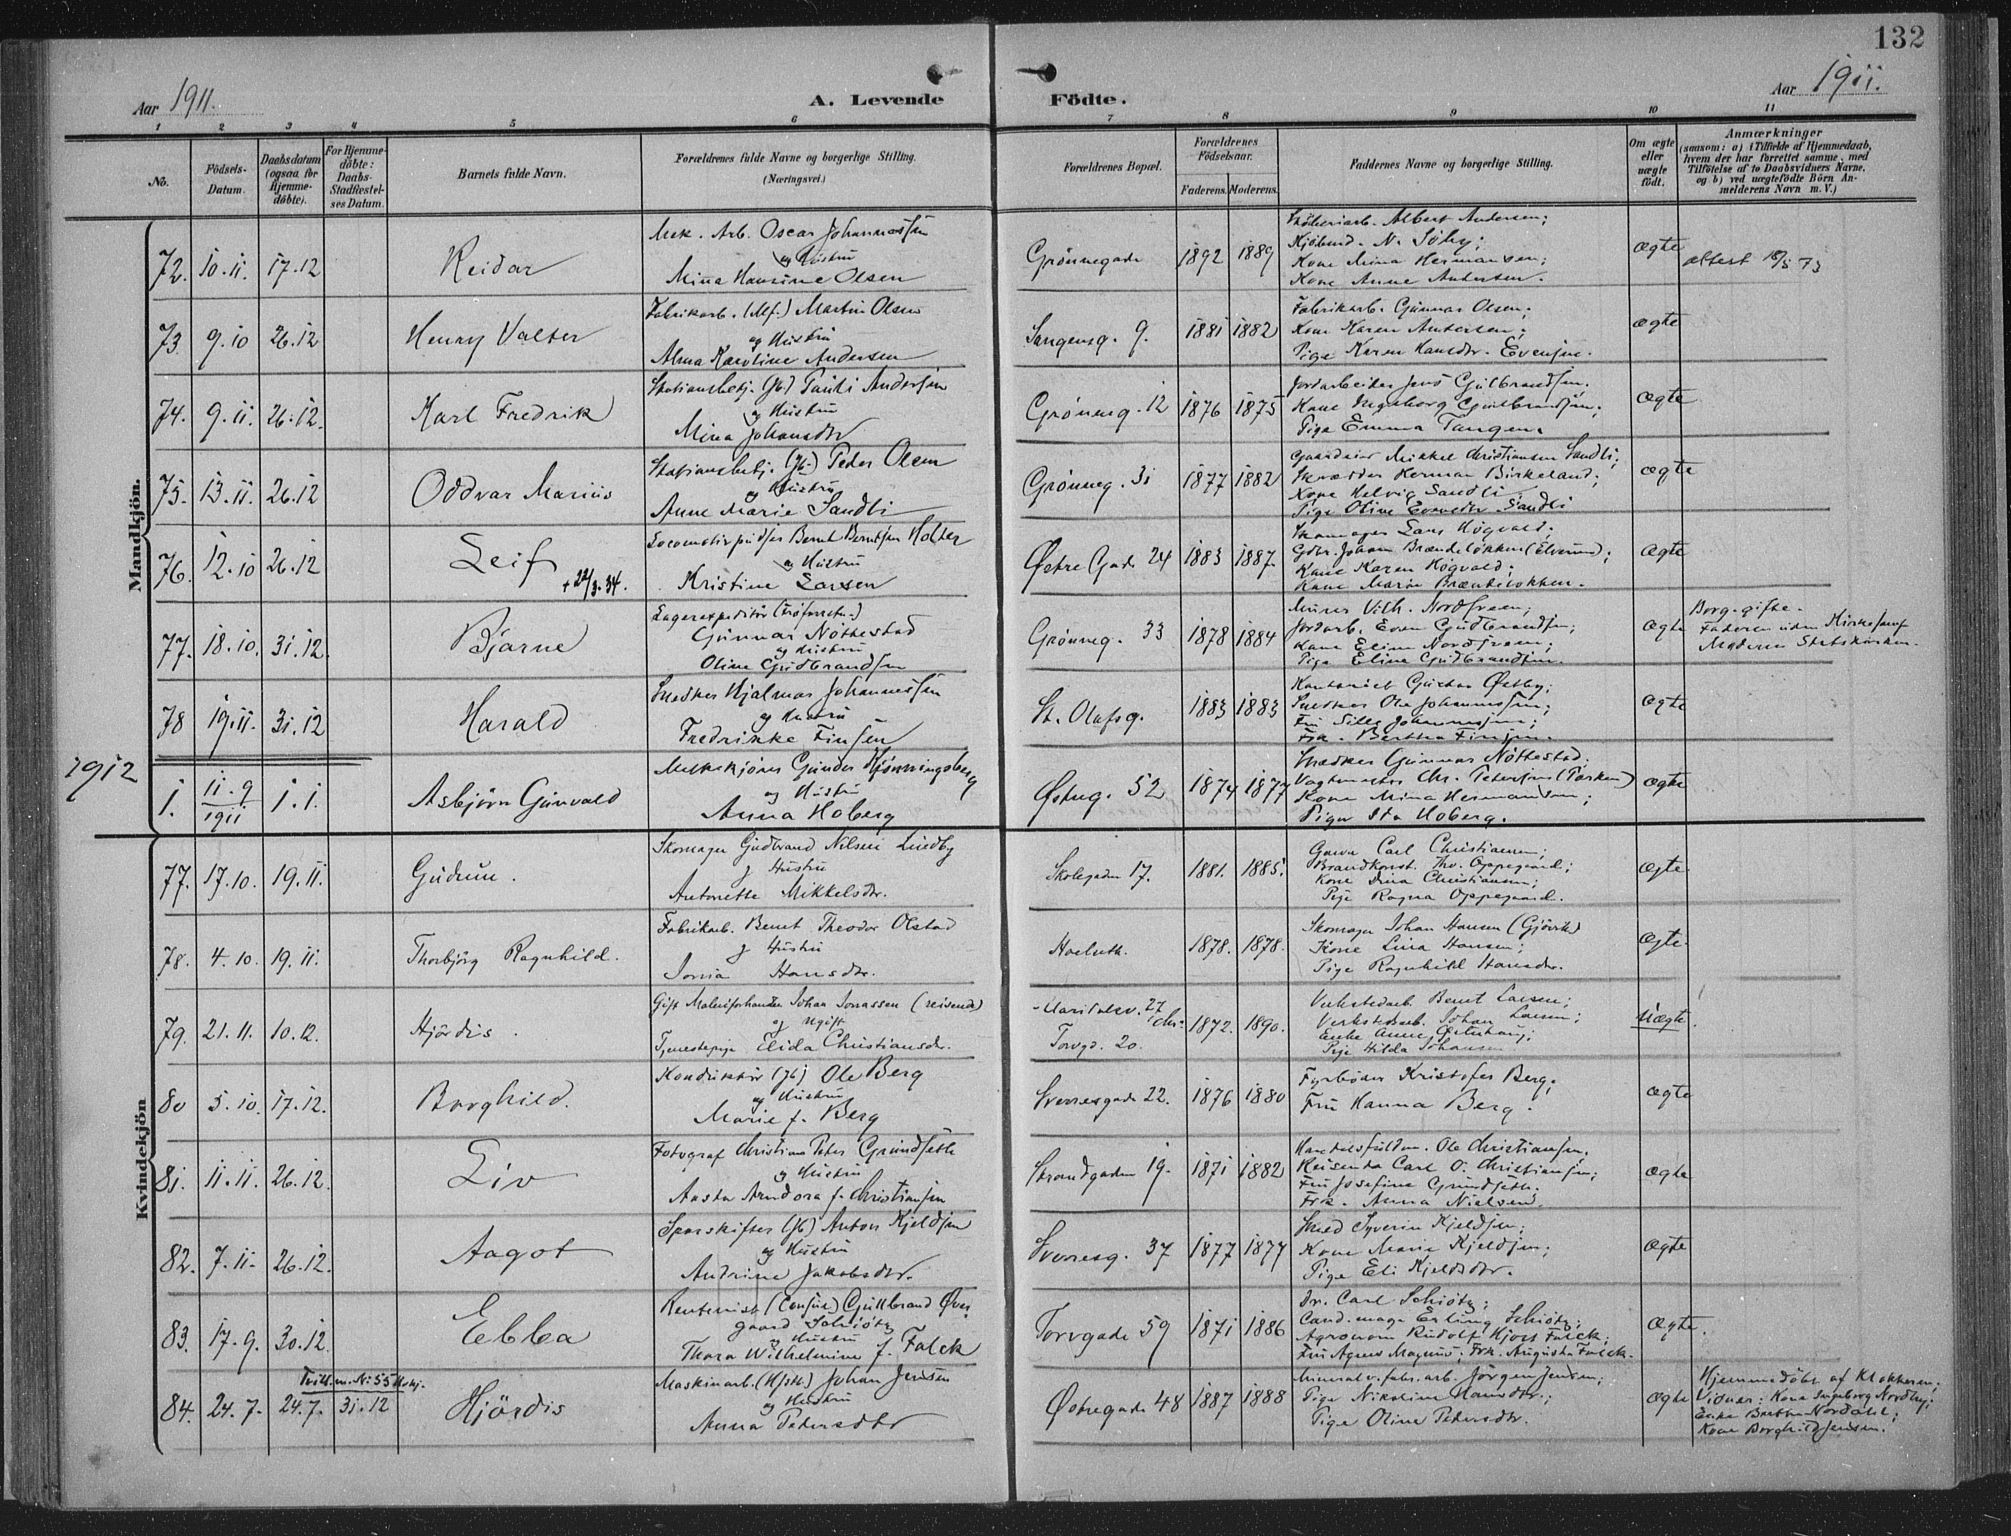 132
Aar 1911.
A. Levende Födte.
Aar 1911.
1 2 3 4 5 6 7 8 9 10 11
No.
Födsels-Datum.
Daabsdatum (ogsaa for Hjemme-döbte).
For Hjemme-döbte: Daabs-Stadfestel-ses Datum.
Barnets fulde Navn.
Forældrenes fulde Navne og borgerlige Stilling. (Næringsvei.)
Forældrenes Bopæl.
Forældrenes Födselsaar.
Faderens. Moderens.
Faddernes Navne og borgerlige Stilling.
Om ægte eller uægte födt.
Anmærkninger
(saasom: a) i Tilfælde af Hjemmedaab, hvem der har forrettet samme, med Tilföielse af to Daabsvidners Navne, og b) ved uægtefödte Börn An-melderens Navn m. V.)
Mandkjön.
72. 10.11. 17.12 Reidar
Mek. Arb. Oscar Johannessen
og Hustru
Mina Hansine Olsen
Grønnegade 1892 1889
Albert Andersen;
Kjøbmd. N. Søby;
Kone Mina Hermansen;
Kone Anne Andersen.
ægte
attest 18/5 73
73. 9.10 26.12 Henry Valter
Fabrikarb. (Mf.) Martin Olsen
og Hustru
Alma Karoline Andersen
Vangensg. 9. 1881 1882
Fabrikarb. Gunnar Olsen;
Kone Karen Andersen;
Pige Karen Hansdtr. Evensen.
ægte
74. 9.11. 26.12. Karl Fredrik
Stationsbetj. (Jb.) Pauli Andersen
og Hustru
Mina Johansdtr
Grønneg. 12 1876 1875
Jordarbeider Jens Gulbrandsen;
Kone Ingeborg Gulbrandsen;
Pige Emma Tangen.
ægte
75. 13.11. 26.12 Oddvar Marius
Stationsbetj. (Jb.) Peder Olsen
og Hustru
Anne Marie Sandli
Grønneg. 31 1877 1882
Gaardeier Mikkel Christiansen Sandli;
Skrædder Herman Birkeland;
Kone Helvig Sandli
Pige Oline Evensdtr Sandli
ægte
76. 12.10 26.12 Leif
+ 22/3.34.
Locomotivpudser Bernt Berntsen Holter
og Hustru
Kristine Larsen
Østre Gade 24 1883 1887.
Skomager Lars Høgvald;
Gdbr. Johan Brændeløkken (Elverum);
Kone Karen Høgvald;
Kone Marie Brændeløkken.
ægte
77. 18.10. 31.12. Bjarne
Lagerexpeditør (Trøforretn.)
Gunnar Nøttestad
og Hustru
Oline Gudbrandsen
Grønneg. 33 1878 1884
Murer Vilh. Nordsveen;
Jordarb. Even Gudbrandsen;
Kone Eline Nordsveen;
Pige Eline Gudbrandsen.
ægte
Borg. gifte.
Faderen uden Kirkesamf
Moderen Statskirken.
78 19.11. 31.12 Harald
Snedker Hjalmar Johannessen
og Hustru
Fredrikke Finsen
St. Olafsg. 1883 1883
Kontorist Gustav Østby;
Snedker Ole Johannessen;
Fru Silla Johannessen;
Frk. Bertha Finsen.
ægte
1912
1. 11.9 1911 1.1. Asbjørn Gunvald
Melkekjører Gunder Hjønningsberg
og Hustru
Anna Hoberg
Østreg. 52 1874 1877
Snedker Gunnar Nøttestad;
Vagtmester Chr. Petersen (Parken)
Kone Mina Hermansen;
Pige Ita Hoberg.
ægte
Kvindekjön
77. 17.10. 19.11. Gudrun.
Skomager Gudbrand Nilsen Lundby
og Hustru
Antonette Mikkelsdtr.
Skolegaden 17. 1881. 1885.
Garver Carl Christiansen;
Brandkonst. Thv. Oppegaard;
Kone Dina Christiansen;
Pige Ragna Oppegaard.
ægte
78. 4.10. 19.11. Thorbjörg Ragnhild.
Fabrikarb. Bernt Theodor Olstad
og Hustru
Hansdtr.
1878. 1878.
Skomager Johan Hansen (Gjøvik)
Kone Lina Hansen;
Pige Ragnhild Hansdtr.
ægte.
79. 21.11. 10.12. Hjördis.
Gift Malmforhandler Johan Jonassen (reisende)
og Ugift
Tjenestepige Elida Christiansdtr.
27
Torvgd. 20. 1872. 1890.
Verkstedarb. Bernt Larsen;
Verkstedarb. Johan Larsen;
Enke Anne Østerhaug;
Pige Hilda Johansen
uægte.
80 5.10. 17.12. Borghild.
Konduktør (Jb) Ole Berg
og Hustru
Marie f. Berg
Sverresgade 22. 1876 1880
Fyrbøder Kristofer Berg;
Fru Hanna Berg.
ægte
81. 11.11. 26.12. Liv
Fotograf Christian Peter Grundseth
og Hustru
Aasta Arndora f. Christiansen
Strandgaden 19. 1871 1882
Handelsfuldm. Ole Christiansen;
Reisende Carl O. Christiansen;
Fru Josefine Grundseth.
Frk. Anna Nielsen.
ægte
82. 7.11. 26.12. Aagot
Sporskifter (Jb) Anton Kjeldsen
og Hustru
Andrine Jakobsdtr.
Sverresg. 37 1877 1877
Smed Syverin Kjeldsen;
Kone Marie Kjeldsen;
Pige Eli Kjeldsdtr.
ægte
83. 17.9. 30.12. Ebba
Rentenist (Consul) Gullbrand Øver-
gaard Schiøtz
og Hustru
Thora Wilhelmine f. Falck
Torvgade 59 1871 1886
Dr. Carl Schiøtz;
Cand. mag. Erling Schiøtz;
Agronom Rudolf Hjort Falck;
Fru Agnes Magnus; Frk. Augusta Falck.
ægte.
Tvill. m. No 55
84. 24.7. 24.7. 31.12 Hjördis
Maskinarb. Johan Jensen
og Hustru
Anna Pedersdtr
Østregade 48 1887 1888
Mineralv.fabr.arb. Jørgen Jensen;
Pige Nikoline Hansdtr.;
Pige Oline Pedersdtr.
ægte
Hjemmedöbt af Klokkeren.
Vidner: Kone Ingeborg Nordby;
Enke Berthe Nordahl;
Kone Borghild Jensen.